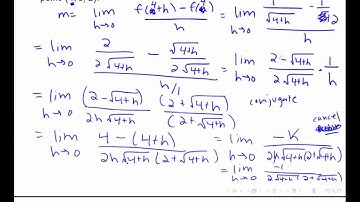 m = lim h→0 (f(4+h) − f(4))/h = lim h→0 (1/√(4+h) − 1/2)/h
= lim h→0 (2/(2√(4+h)) − √(4+h)/(2√(4+h)))/(h/1) = lim h→0 (2−√(4+h))/(2√(4+h)) · 1/h
= lim h→0 (2−√(4+h))/(2h√(4+h)) (2+√(4+h))/(2+√(4+h)) conjugate
cancel
= lim h→0 (4 − (4+h))/(2h√(4+h) (2+√(4+h))) = lim h→0 −h/(2h√(4+h)(2+√(4+h)))
= lim h→0 −1/(2√(4+h) (2+√(4+h)))